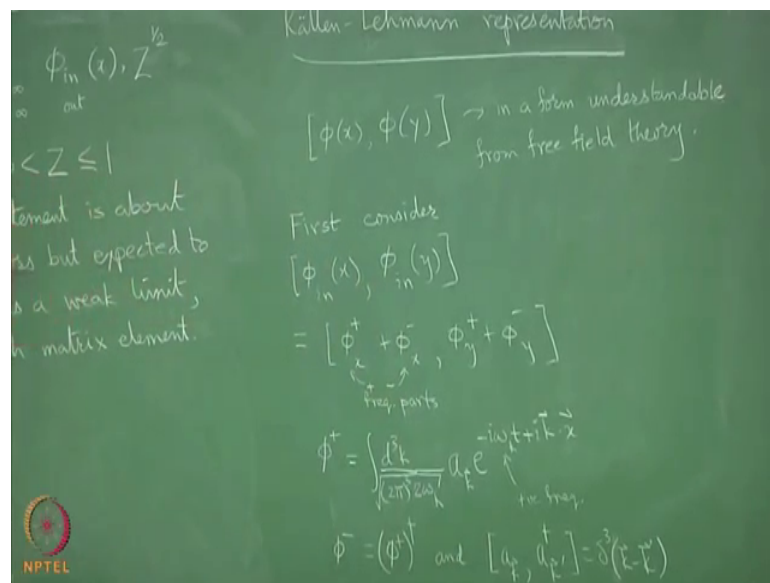 ∞ ϕ_in (x), Z^{1/2}
∞ out
< Z ≤ 1
tement is about
ss but expected to
s a weak limit,
h matrix element.
Källen-Lehmann representation
[ϕ(x), ϕ(y)] → in a form understandable
from free field theory.
First consider
[ϕ_in(x), ϕ_in(y)]
= [ϕ_x^+ + ϕ_x^-, ϕ_y^+ + ϕ_y^-]
+ -
freq. parts
ϕ^+ = ∫ d^3k / √((2π)^3 2ω_k) a_k⃗ e^{-iω_k t + i k⃗·x⃗}
+ve freq.
ϕ^- = (ϕ^+)^† and [a_k⃗, a_k⃗'^†] = δ^3(k⃗-k⃗')
NPTEL